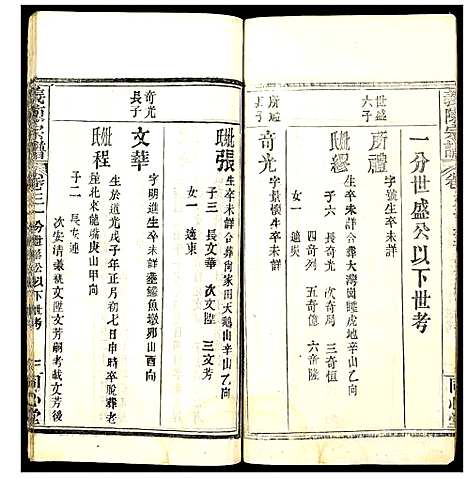 義陳宗譜
一分世盛公以下世考
世盛
六子
所禮
字號生卒未詳
妣繆
生卒未詳合葬大灣崗睡虎地辛山乙向
子六 長奇光 次奇局 三奇恒
四奇列 五奇億 六奇陞
女一 適吳
所禮
長子
奇光
字景懷生卒未詳
妣張
生卒未詳合葬尚家田天鵝山辛山乙向
子三 長文華 次文陞 三文芳
女一 適東
奇光
長子
文華
字明達生卒未詳葬鱔魚墩卯山酉向
妣程
生於道光戊子年正月初七日申時卒殁葬老
屋北東龍嘴庚山甲向
子二 長
次安清
文陞文芳嗣考載文芳後
義陳宗譜
卷三
一分世盛公以下世考
同心堂